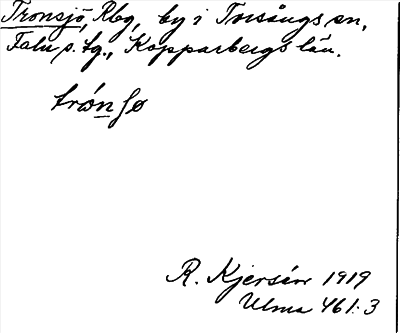 Tronsjö, Rbg, by i Torsångs sn,
Falu s. tg., Kopparbergs län.
trónʃø
R. Kjersén 1919
Ulma 461:3